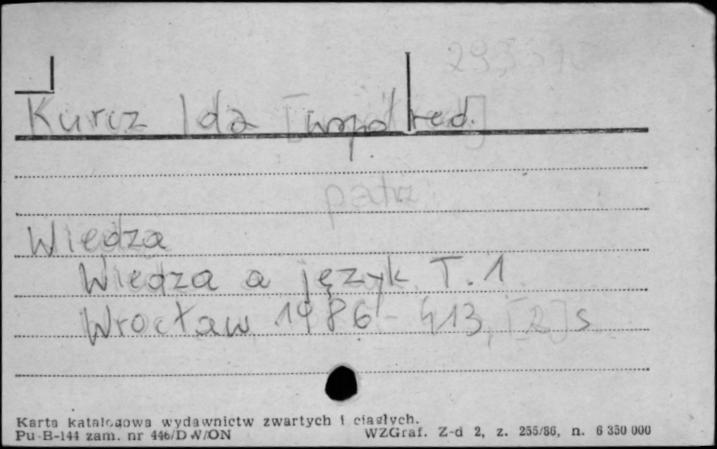 Kurcz Ida [współred.]
patrz
Wiedza
Wiedza a język T. 1
Wrocław 1986 - 413, [2] s
Karta katalogowa wydawnictw zwartych i ciągłych.
Pu-B-144 zam. nr 446/DW/ON WZGraf. Z-d 2, z. 255/86, n. 6 350 000